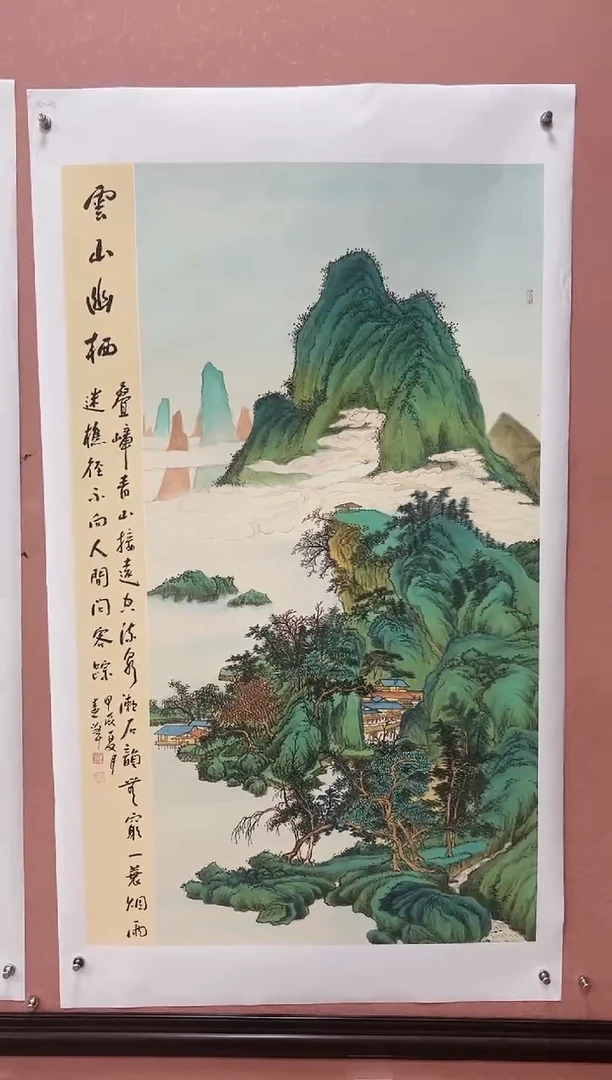 雲山幽栖
叠嶂青山接遠空流泉漱石韻無窮一蓑烟雨
迷樵径不向人間問客踪
甲辰夏月